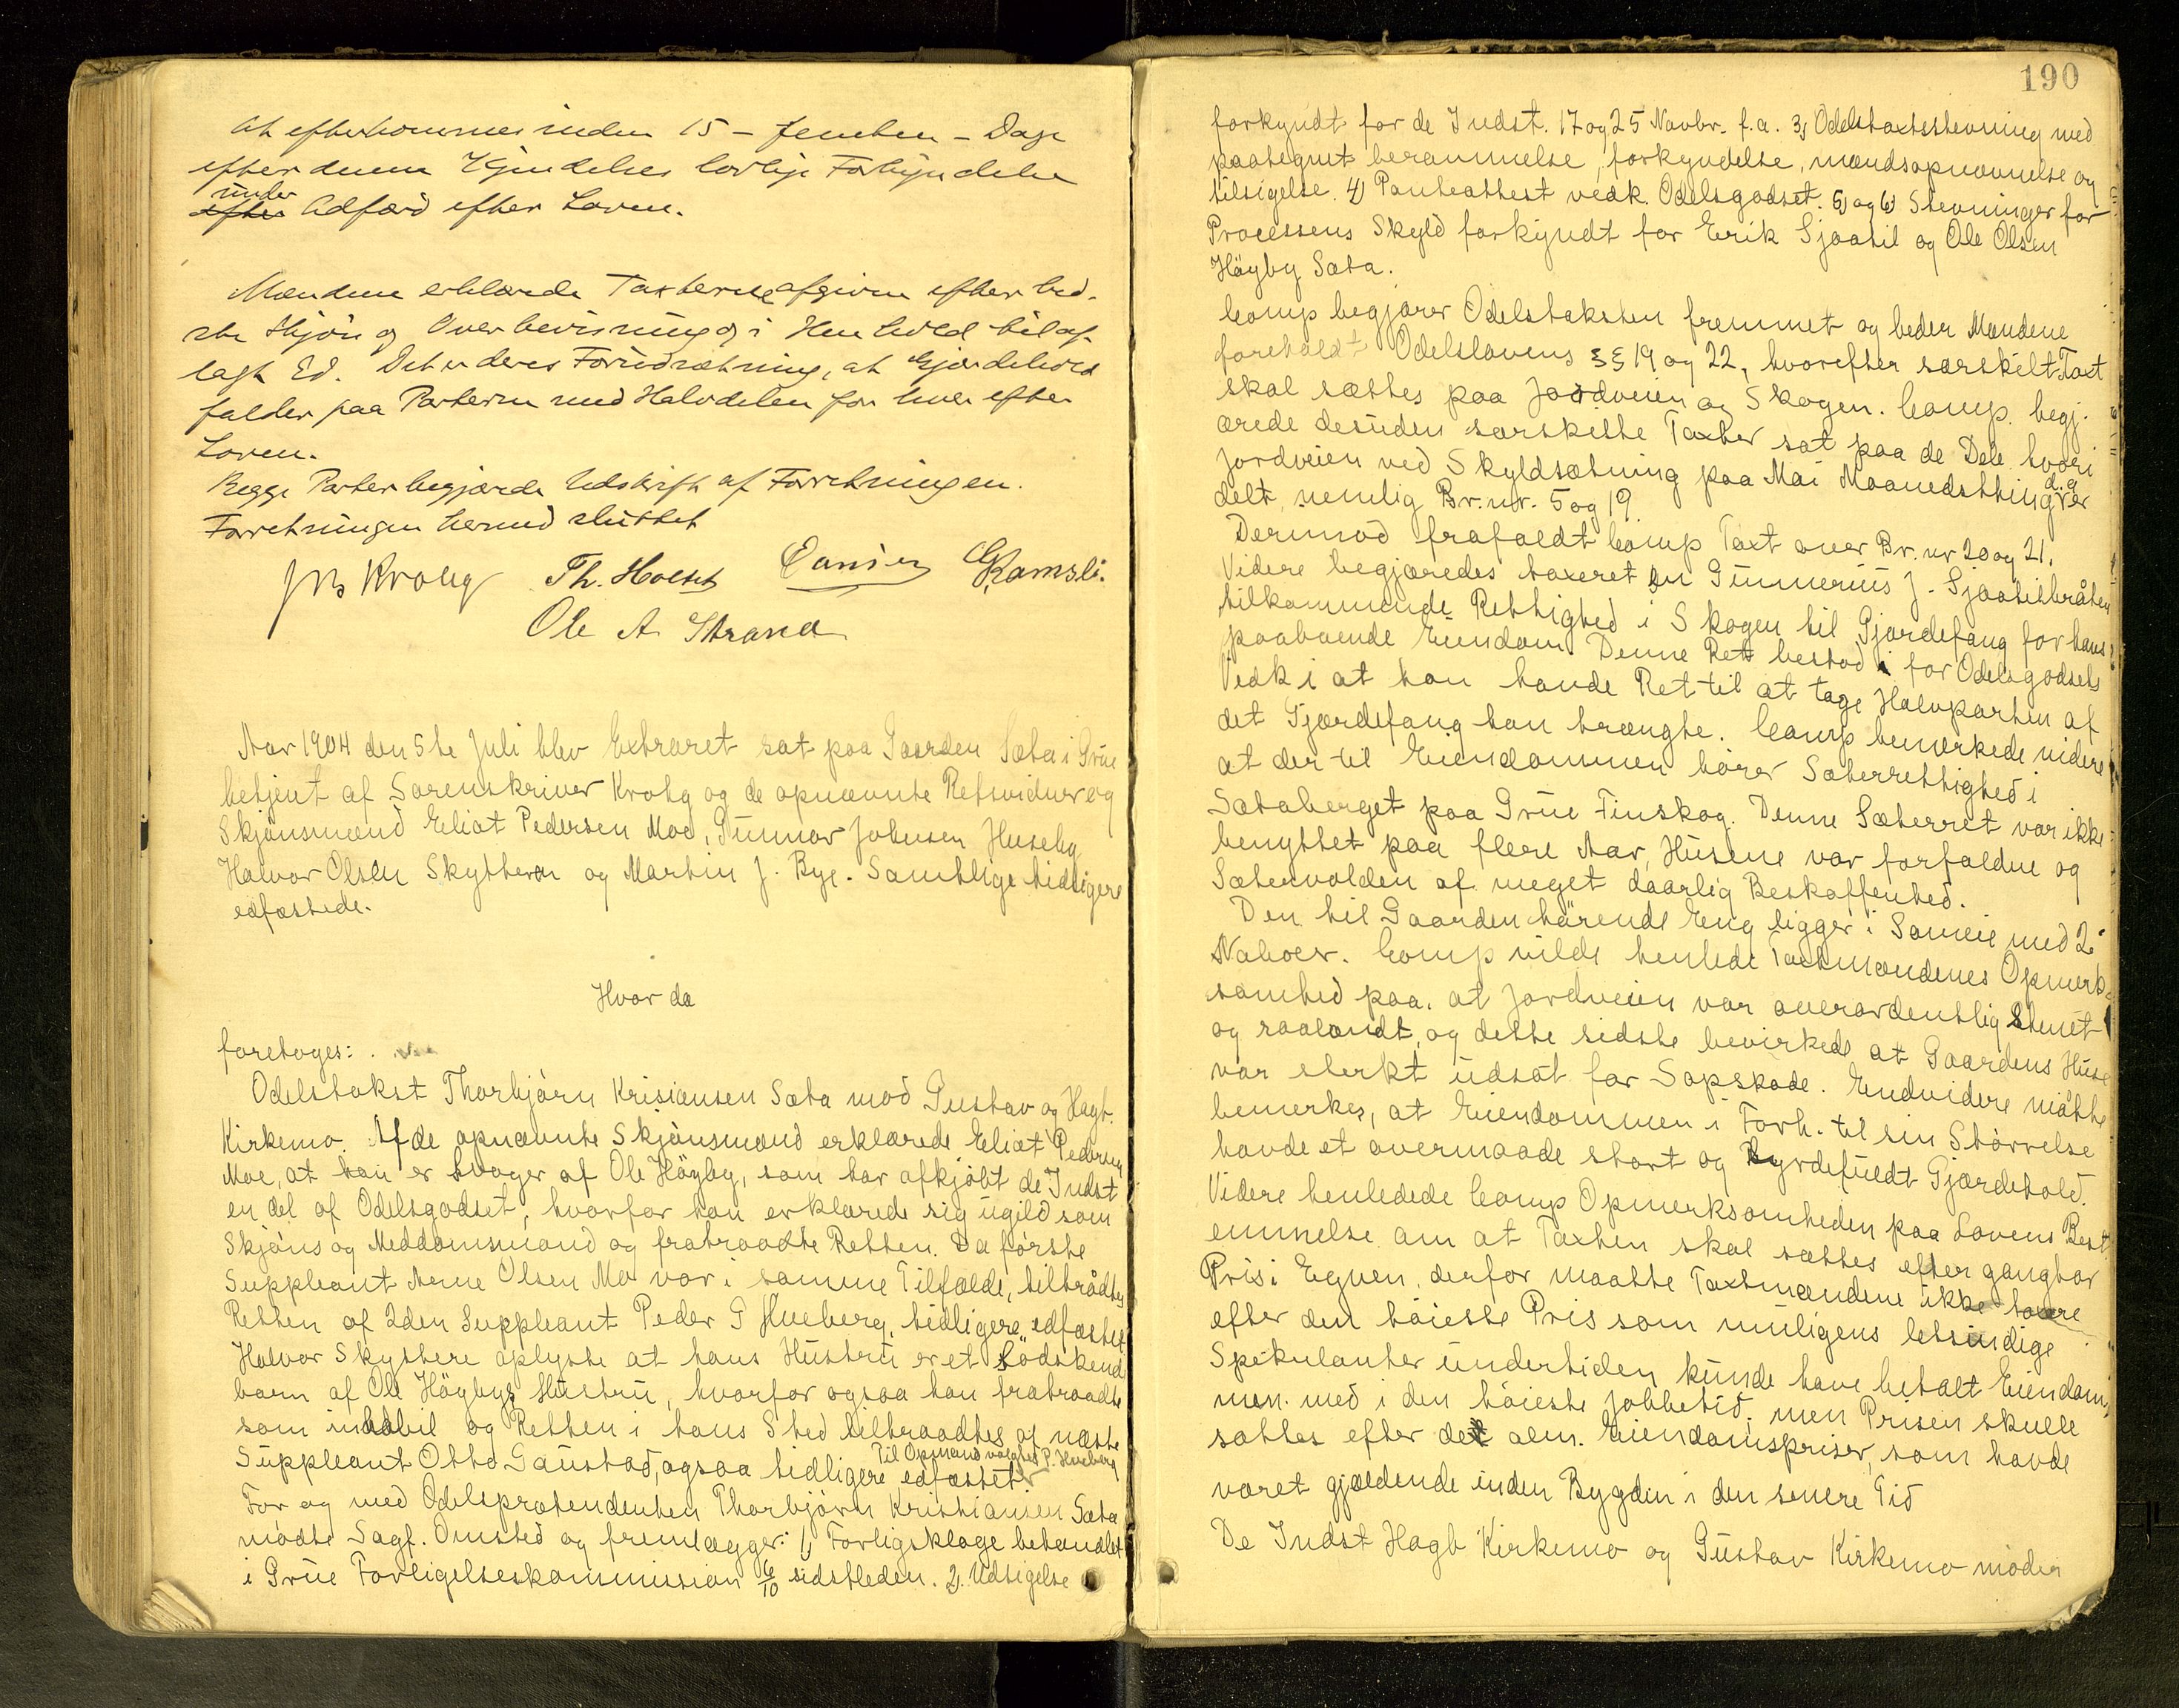 At efterkommes inden 15 - femten - Dage
efter denne Kjendelses lovlige Forkyndelse
under
efter Adfærd efter Loven.
Mændene erklærede Taxterne afgivne efter bed-
ste Skjøn og Overbevisning og i Henhold til af-
lagt Ed. Det er deres Forudsætning, at Gjerdehold
falder paa Parterne med Halvdelen for hver efter
Loven.
Begge Parter begjærede Udskrift af Forretningen.
Forretningen hermed sluttet
Krohg Th. Holset Ramsli.
Ole A Strand
Aar 1904 den 5te Juli blev Extraret sat paa Gaarden Sæta i Grue
betjent af Sorenskriver Krohg og de opnævnte Retsvidner og
Skjønsmænd Eliat Pedersen Moe, Gunnar Johnsen Huseby
Halvor Olsen Skyttern og Martin J. Bye. Samtlige tidligere
edfæstede.
Hvor da
foretoges:
Odelstakst Thorbjørn Krisiansen Sæta mod Gustav og Hagb.
Kirkemo. Af de opnævnte Skjønsmænd erklærede Eliat Pedersen
Moe, at han er Svoger af Ole Høgby, som har afkjøbt de Indst
en del af Odelsgodset, hvorfor han erklærede sig ugild som
Skjøns og Meddomsmand og fratraadte Retten. Da første
Suppleant Arne Olsen Mo var i samme Tilfælde, tiltrådtes
Retten af 2den Suppleant Peder G Hueberg, tidligere edfæstet
Halvor Skyttere oplyste at hans Hustru er et Södskend
barn af Ole Högbys Hustru, hvorfor ogsaa han fratraadte
som inhabil og Retten i hans Sted tiltraadtes af næste
Til Opmand valgtes P. Hueberg
Suppleant Otto Gaustad, ogsaa tidligere edfæstet.
For og med Odelsprætendenten Thorbjörn Kristiansen Sæta
mødte Sagf. Omsted og fremlægger: 1) Forligsklage behandlet
i Grue Forligelseskommission 6/10 sidstleden. 2) Udsigelse
190
forkyndt for de Indst. 17 og 25 Novbr. f.a. 3) Odelstaxtstevning med
paategnet berammelse, forkyndelse, mandsopnævnelse og
tilsigelse. 4) Panteattest vedk. Odelsgodset. 5) og 6) Stevninger for
Processens Skyld forkyndt for Erik Sjaatil og Ole Olsen
Høgby Sæta.
Comp begjærer Odelstaksten fremmet og beder Mændene
foreholdt Odelslovens §§ 19 og 22, hvorefter særskilt Taxt
skal sættes paa Jordveien og Skogen. Comp. begj-
ærede desuden særskilte Taxter sat paa de Dele hvori
Jordveien ved Skyldsætning paa Mai Maanedsthing d.a. er
delt, nemlig Br.nr. 5 og 19.
Dermod frafaldt Comp Taxt over Br. nr 20 og 21.
Videre begjæredes taxeret en Gunnerius J. Sjaatilbråten
tilkommende Rettighed i Skogen til Gjærdefang for hans
paaboende Eiendom. Denne Ret bestod for Odelsgodsets
Vedk i at han havde Ret til at tage Halvparten af
det Gjærdefang han trængte. Comp bemerkede videre
at der til Eiendommen hører Sæterrettighed i
Sætaberget paa Grue Finskog. Denne Sæterret var ikke
benyttet paa flere Aar, Husene var forfaldne og
Sætervolden af meget daarlig Beskaffenhed.
Den til Gaarden hörende Eng ligger i Sameie med 2
Naboer. Comp vilde henlede Taxtmændenes Opmerk-
somhed paa, at Jordveien var overordentlig stenet
og raalendt, og dette sidste bevirkede at Gaardens Huse
var sterkt udsat for Sopskade. Endvidere måtte
bemerkes, at Eiendommen i Forh. til sin Størrelse
havde et overmaade stort og Byrdefuldt Gjærdehold.
Videre henledede Comp Opmerksomheden paa Lovens Best
emmelse om at Taxten skal sættes efter gangbar
Pris i Egnen, derfor maatte Taxtmændene ikke taxere
efter den høieste Pris som muligens letsindige
Spekulanter undertiden kunde have betalt Eiendom-
men med i den høieste Jobbetid, men Prisen skulle
sættes efter de alm. Eiendomspriser, som havde
været gjældende inden Bygden i den senere Tid
De Indst Hagb Kirkemo og Gustav Kirkemo møder